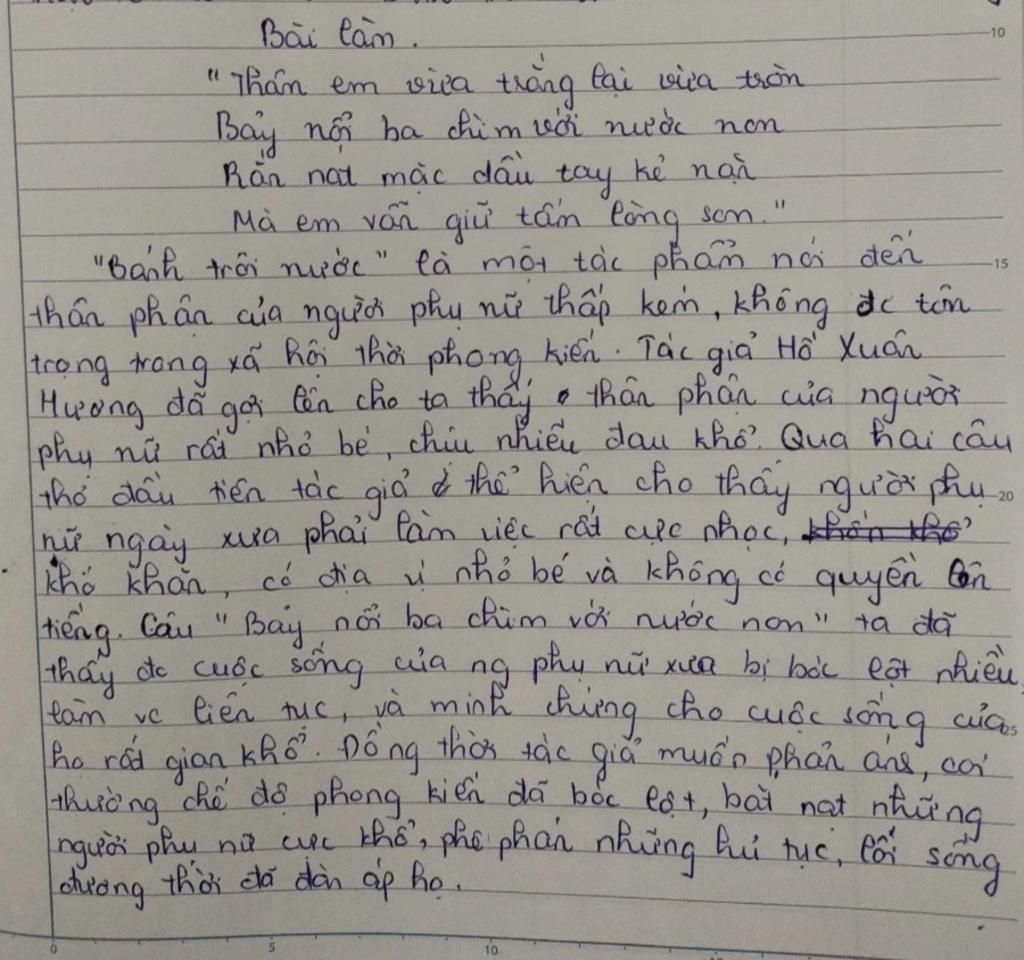 Bài làm.
"Thân em vừa trắng lại vừa tròn
Bảy nổi ba chìm với nước non
Rắn nát mặc dầu tay kẻ nặn
Mà em vẫn giữ tấm lòng son."
"Bánh trôi nước" là một tác phẩm nói đến
thân phận của người phụ nữ thấp kém, không đc tôn
trọng trong xã hội thời phong kiến. Tác giả Hồ Xuân
Hương đã gợi lên cho ta thấy thân phận của người
phụ nữ rất nhỏ bé, chịu nhiều đau khổ. Qua hai câu
thơ đầu tiên tác giả thể hiện cho thấy người phụ
nữ ngày xưa phải làm việc rất cực nhọc, khốn khổ
khó khăn, có địa vị nhỏ bé và không có quyền lên
tiếng. Câu "Bảy nổi ba chìm với nước non" ta đã
thấy đc cuộc sống của ng phụ nữ xưa bị bóc lột nhiều,
làm vc liên tục, và minh chứng cho cuộc sống của
họ rất gian khổ. Đồng thời tác giả muốn phản ánh, coi
thường chế độ phong kiến đã bóc lột, bắt nạt những
người phụ nữ cực khổ, phê phán những hủ tục, lối sống
đương thời đã đàn áp họ.
10
15
20
25
0 5 10